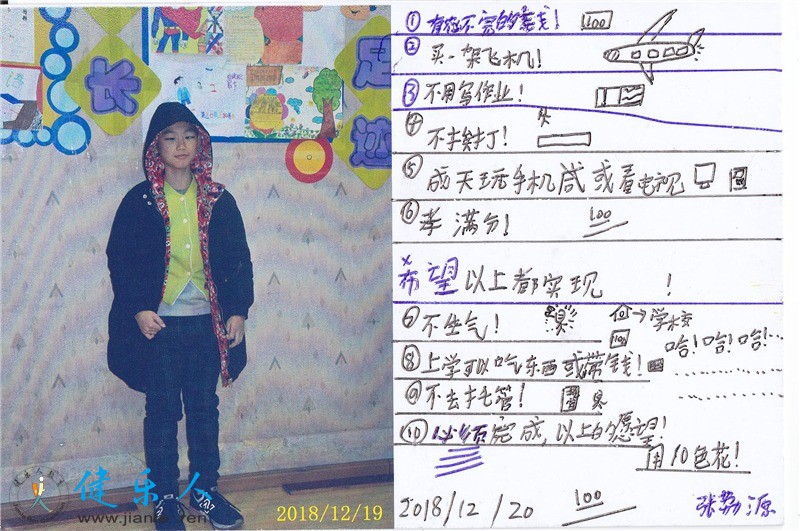 长
足
迹
健乐人
2018/12/19
① 有花不完的美戋!
100
② 买一架飞机!
③ 不用写作业!
④ 不扌丁!
⑤ 成天玩手机或看电视
⑥ 考满分!
100
希望以上都实现!
⑦ 不生气!
→学校
⑧ 上学可以吃东西或带钱!
哈!哈!哈!
⑨ 不去托管!
⑩ 必须完成,以上的愿望!
用10色花!
2018/12/20
100
张荔源